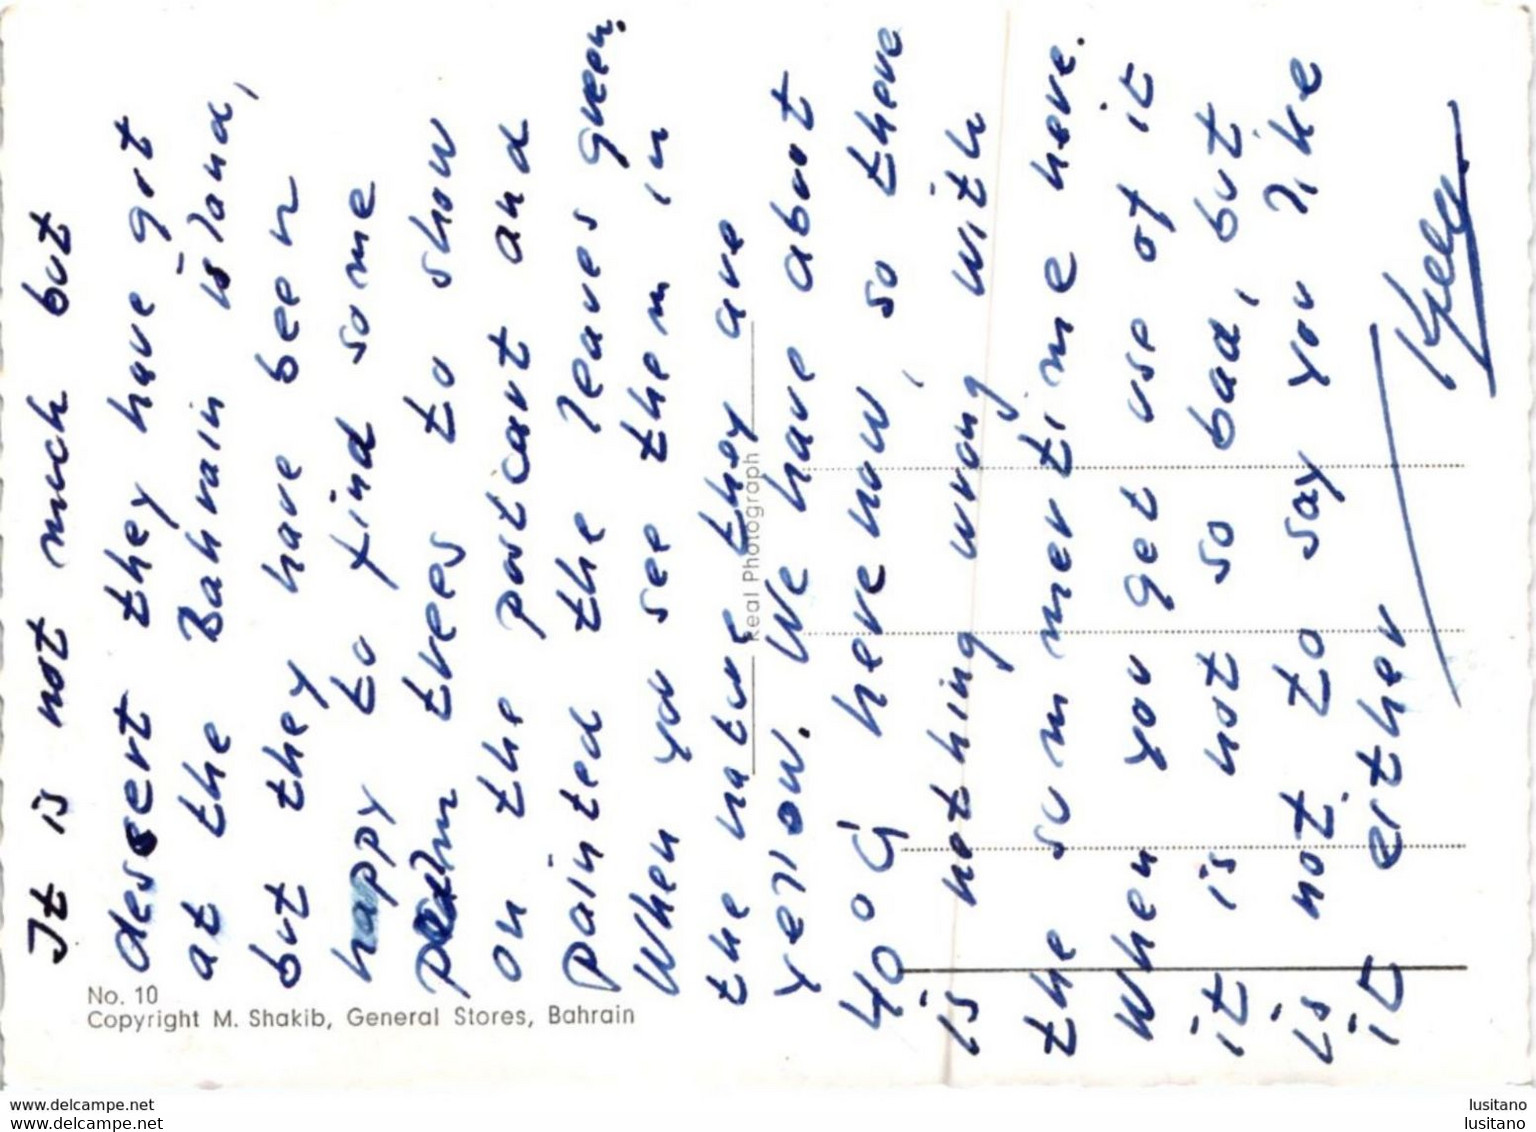 It is not much but
dessert they have got
at the Bahrain island,
but they have been
happy to find some
palm trees to show
on the postcart and
painted the leaves green.
When you see them in
the nature they are
yellow. We have about
40°C here now, so there
is nothing wrong with
the summertime here.
When you get use of it
it is not so bad, but
is not to say you like
it either
Kjell
No. 10
Copyright M. Shakib, General Stores, Bahrain
Real Photograph
www.delcampe.net
www.delcampe.net
lusitano
lusitano